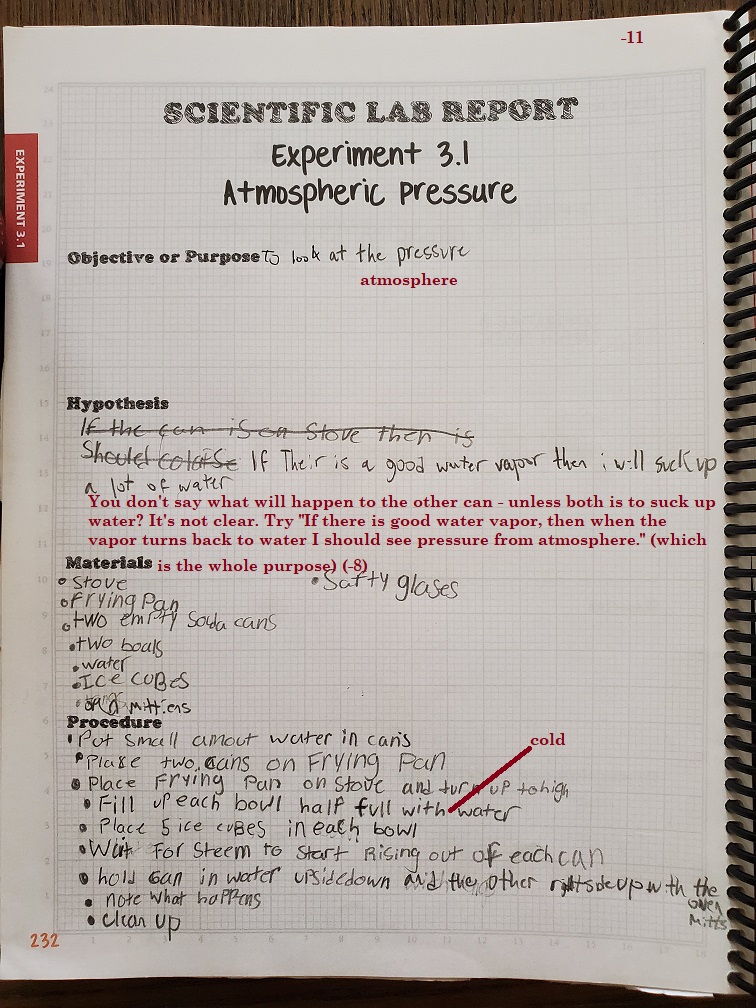 -11
SCIENTIFIC LAB REPORT
Experiment 3.1
Atmospheric Pressure
EXPERIMENT 3.1
Objective or Purpose To look at the pressure
atmosphere
Hypothesis
If the can is on Stove then is
Should colapse If Their is a good water vapor then i will suck up
a lot of water
You don't say what will happen to the other can - unless both is to suck up
water? It's not clear. Try "If there is good water vapor, then when the
vapor turns back to water I should see pressure from atmosphere." (which
is the whole purpose) (-8)
Materials
• Stove
• Frying Pan
• two empty Soda cans
• two bouls
• water
• ICE CUBES
mittiens
• Safty glases
Procedure
• Put small amout water in cans
• Plaise two cans on Frying Pan
cold
• Place Frying Pan on Stove and turn up to high
• Fill up each bowl half full with water
• Place 5 ice cubes in each bowl
• Wait For Steem to Start Rising out of each can
• hold can in water upsidedown and the other rightsideup with the
oven
Mitts
• note what happens
• clean up
232